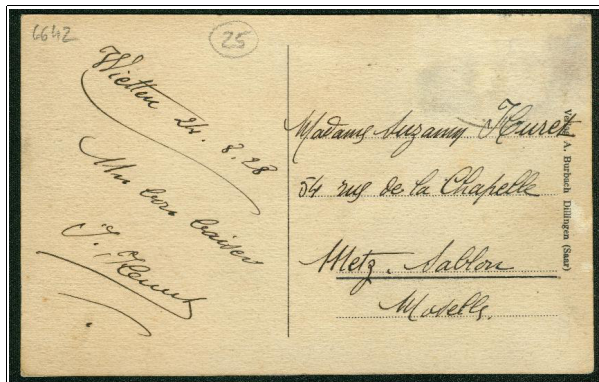 6642
25
Wietten 24.8.28
Un bon baiser
Madame Suzanne Heurck
54 rue de la Chapelle
Metz. Sablon
Moselle.
A. Burbach Dillingen (Saar)